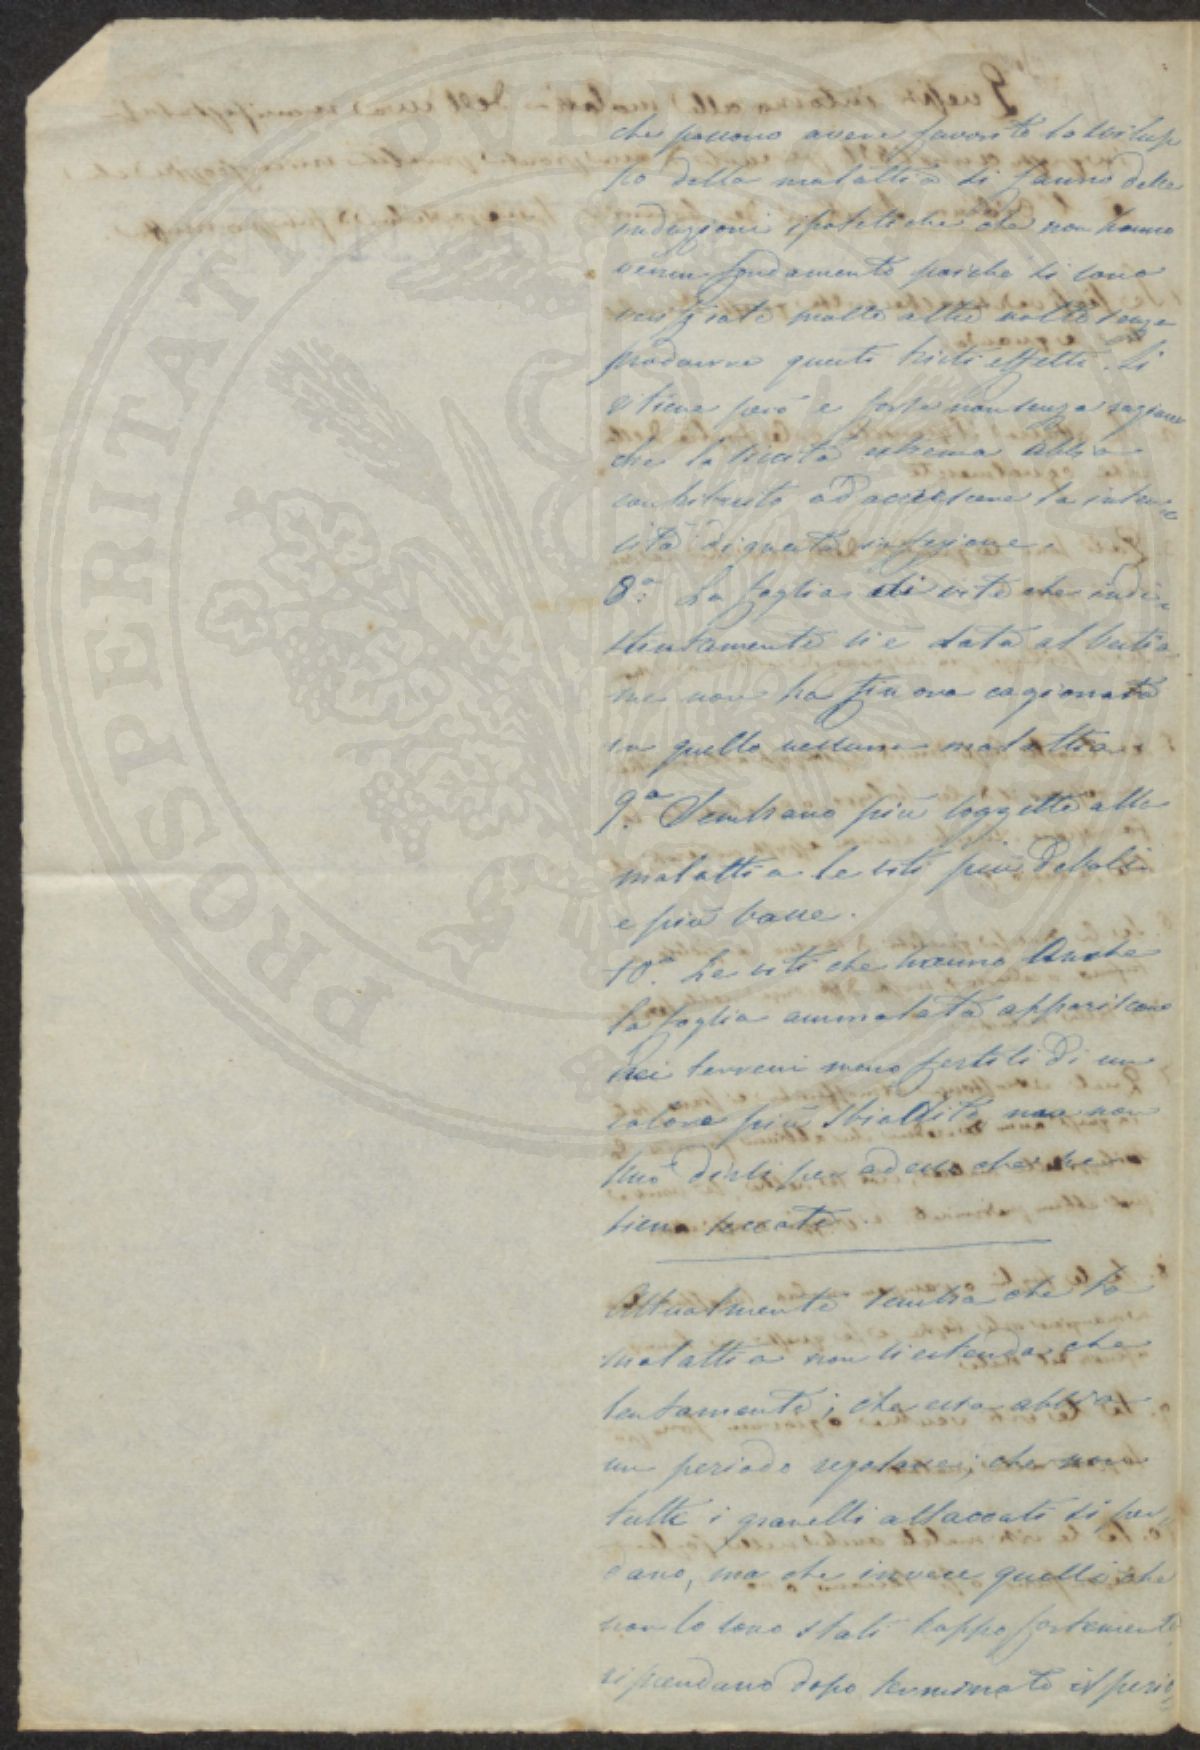 che possono avere favorito lo svilup
po della malattia si fanno delle
induzioni ipotetiche che non hanno
verun fondamento poiché si sono
verificate molte altre volte senza
produrre questi tristi effetti. Si
ritiene però e forse non senza ragione
che la siccità estrema abbia
contribuito ad accrescere la inten=
sità di questa infezione.
8.a La foglia di vite che indi=
stintamente si è data al bestia
me non ha fin ora cagionato
in quello nessuna malattia.
9.a Sembrano più soggette alla
malattia le viti più deboli
e più basse.
10.a Le viti che hanno anche
la foglia ammalata appariscono
nei terreni meno fertili di un
colore più sbiadito ma non
può dirsi per adesso che ne
siena seccate.
Attualmente sembra che la
malattia non si estenda che
lentamente; che essa abbia
un periodo regolare; che non
tutti i granelli attaccati si per=
dano, ma che invece quelli che
non lo sono stati troppo fortemente
riprendano dopo terminato il perio=
PROSPERITATI PUBL